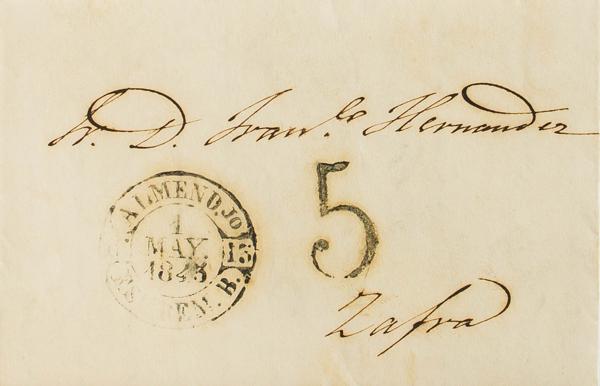 Sr. D. Franco Hernandez
ALMENDJo
1
MAY.
1843
13
EM. B.
5
Zafra